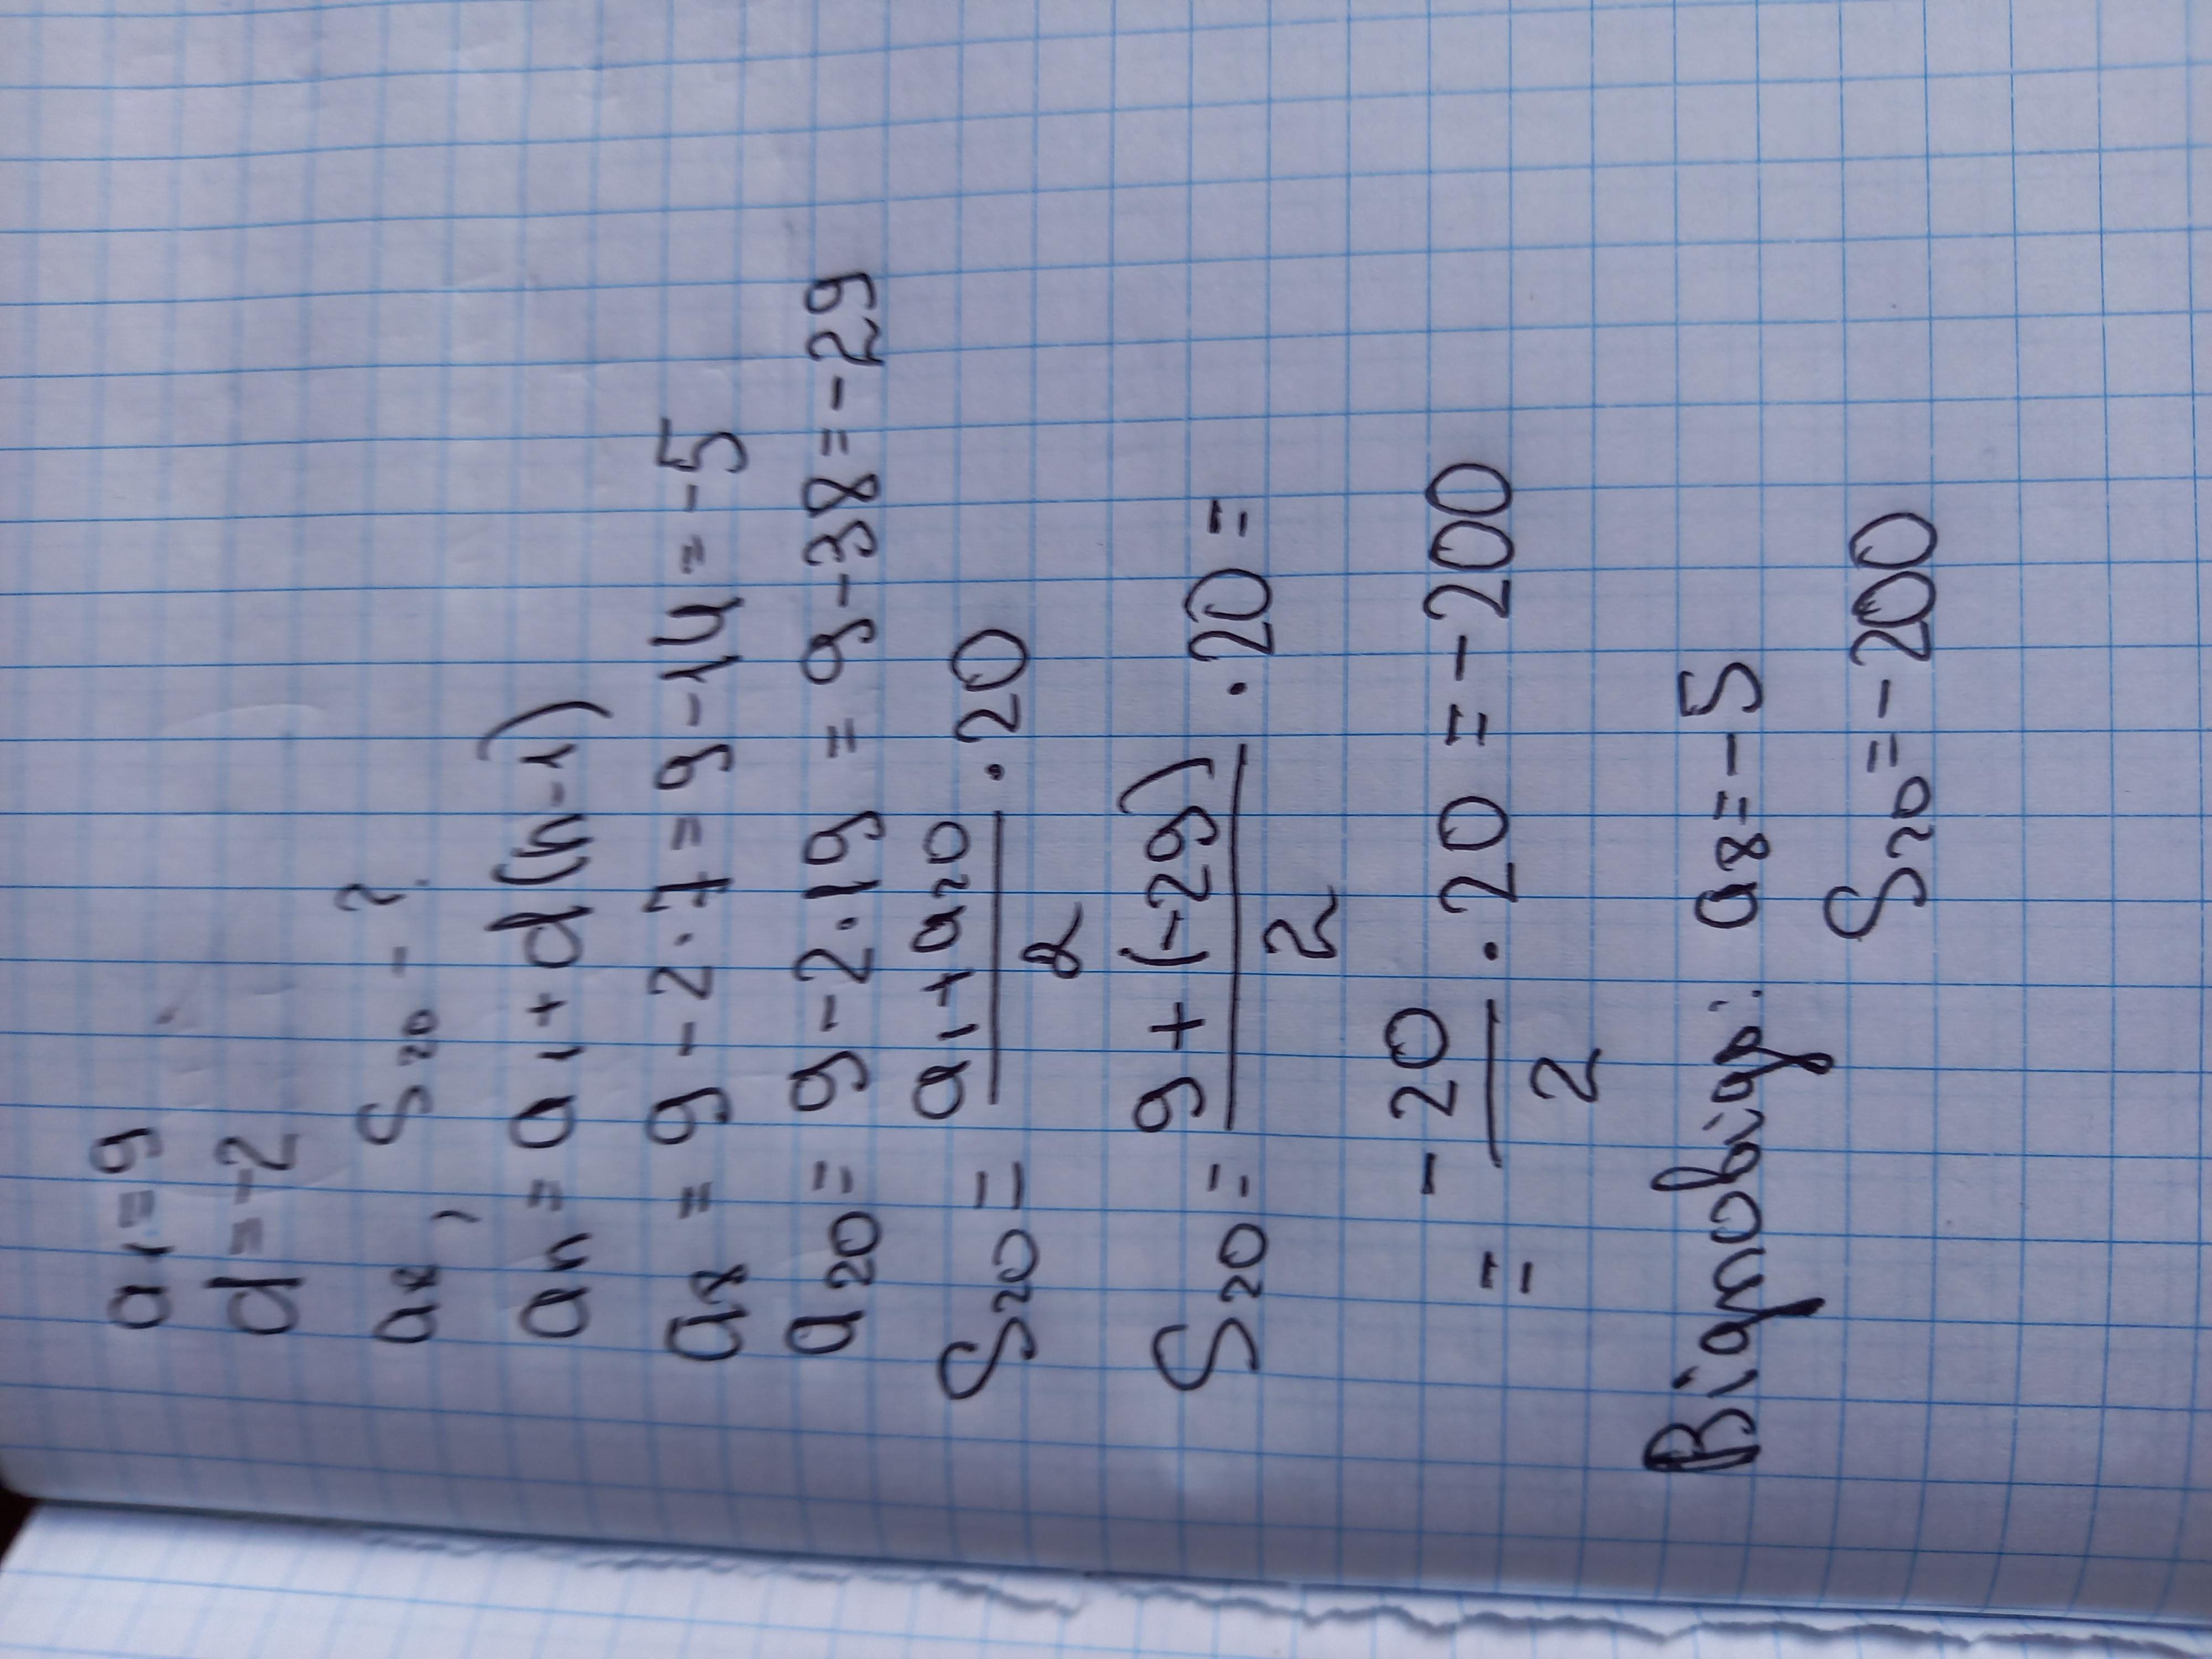 a₁=9
d=-2
a₈, S₂₀-?
aₙ=a₁+d(n-1)
a₈=9-2·7=9-14=-5
a₂₀=9-2·19=9-38=-29
S₂₀=(a₁+a₂₀)/2·20
S₂₀=(9+(-29))/2·20=
=-20/2·20=-200
Відповідь: a₈=-5
S₂₀=-200